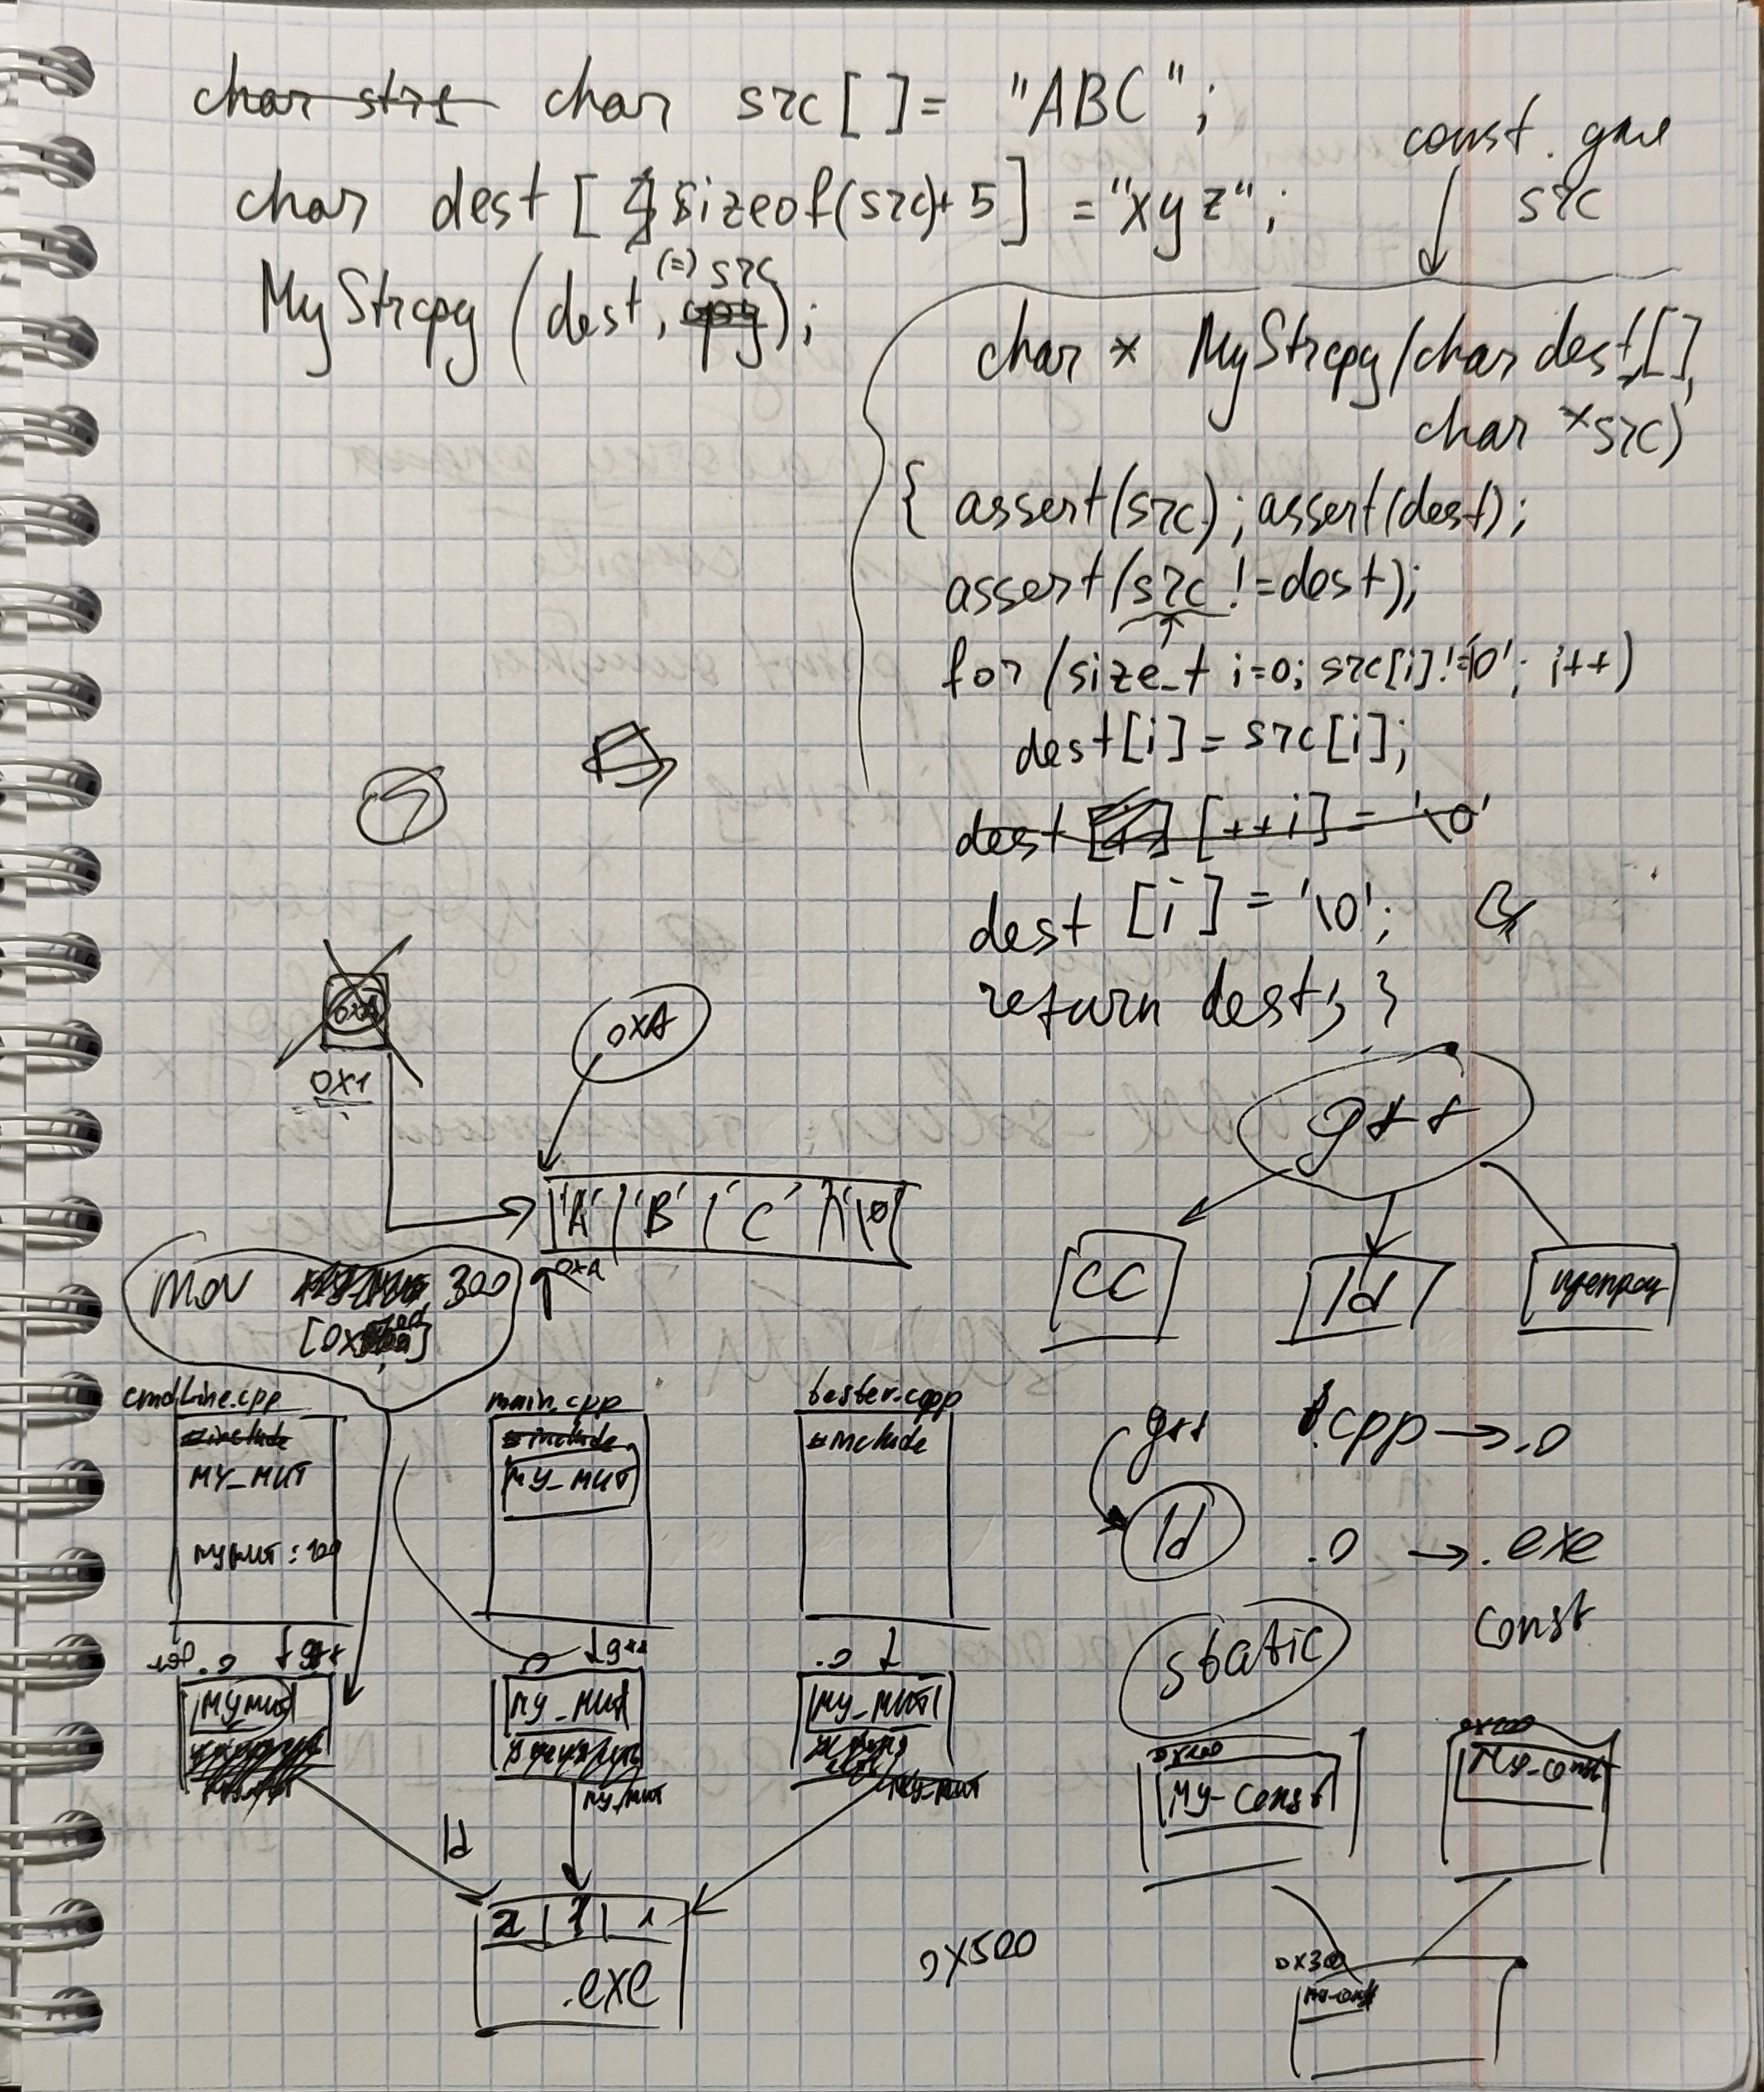 char str char src [ ] = "ABC";
char dest [ sizeof(src)+5 ] = "xyz";
MyStrcpy (dest, src);
(=)
const. для
src
char * MyStrcpy (char dest[],
char *src)
{ assert(src); assert(dest);
assert(src != dest);
for (size_t i=0; src[i]!='\0'; i++)
dest[i] = src[i];
dest [++i] = '\0'
dest [i] = '\0';
return dest; }
0x1
0xA
'A' 'B' 'C' '\0'
0xA
g++
cc
ld
препроц
mov 300
[0x
cmdLine.cpp
#include
MY_MUT
MY MUT = 100
main.cpp
#include
MY_MUT
tester.cpp
#include
g++ .cpp → .o
ld .o → .exe
.o g++
MY MUT
.o g++
MY_MUT
MY_MUT
.o
MY_MUT
MY_MUT
ld
2 1 1
.exe
0x500
static
const
0x100
MY-const
0x200
MY-const
0x300
MY-const